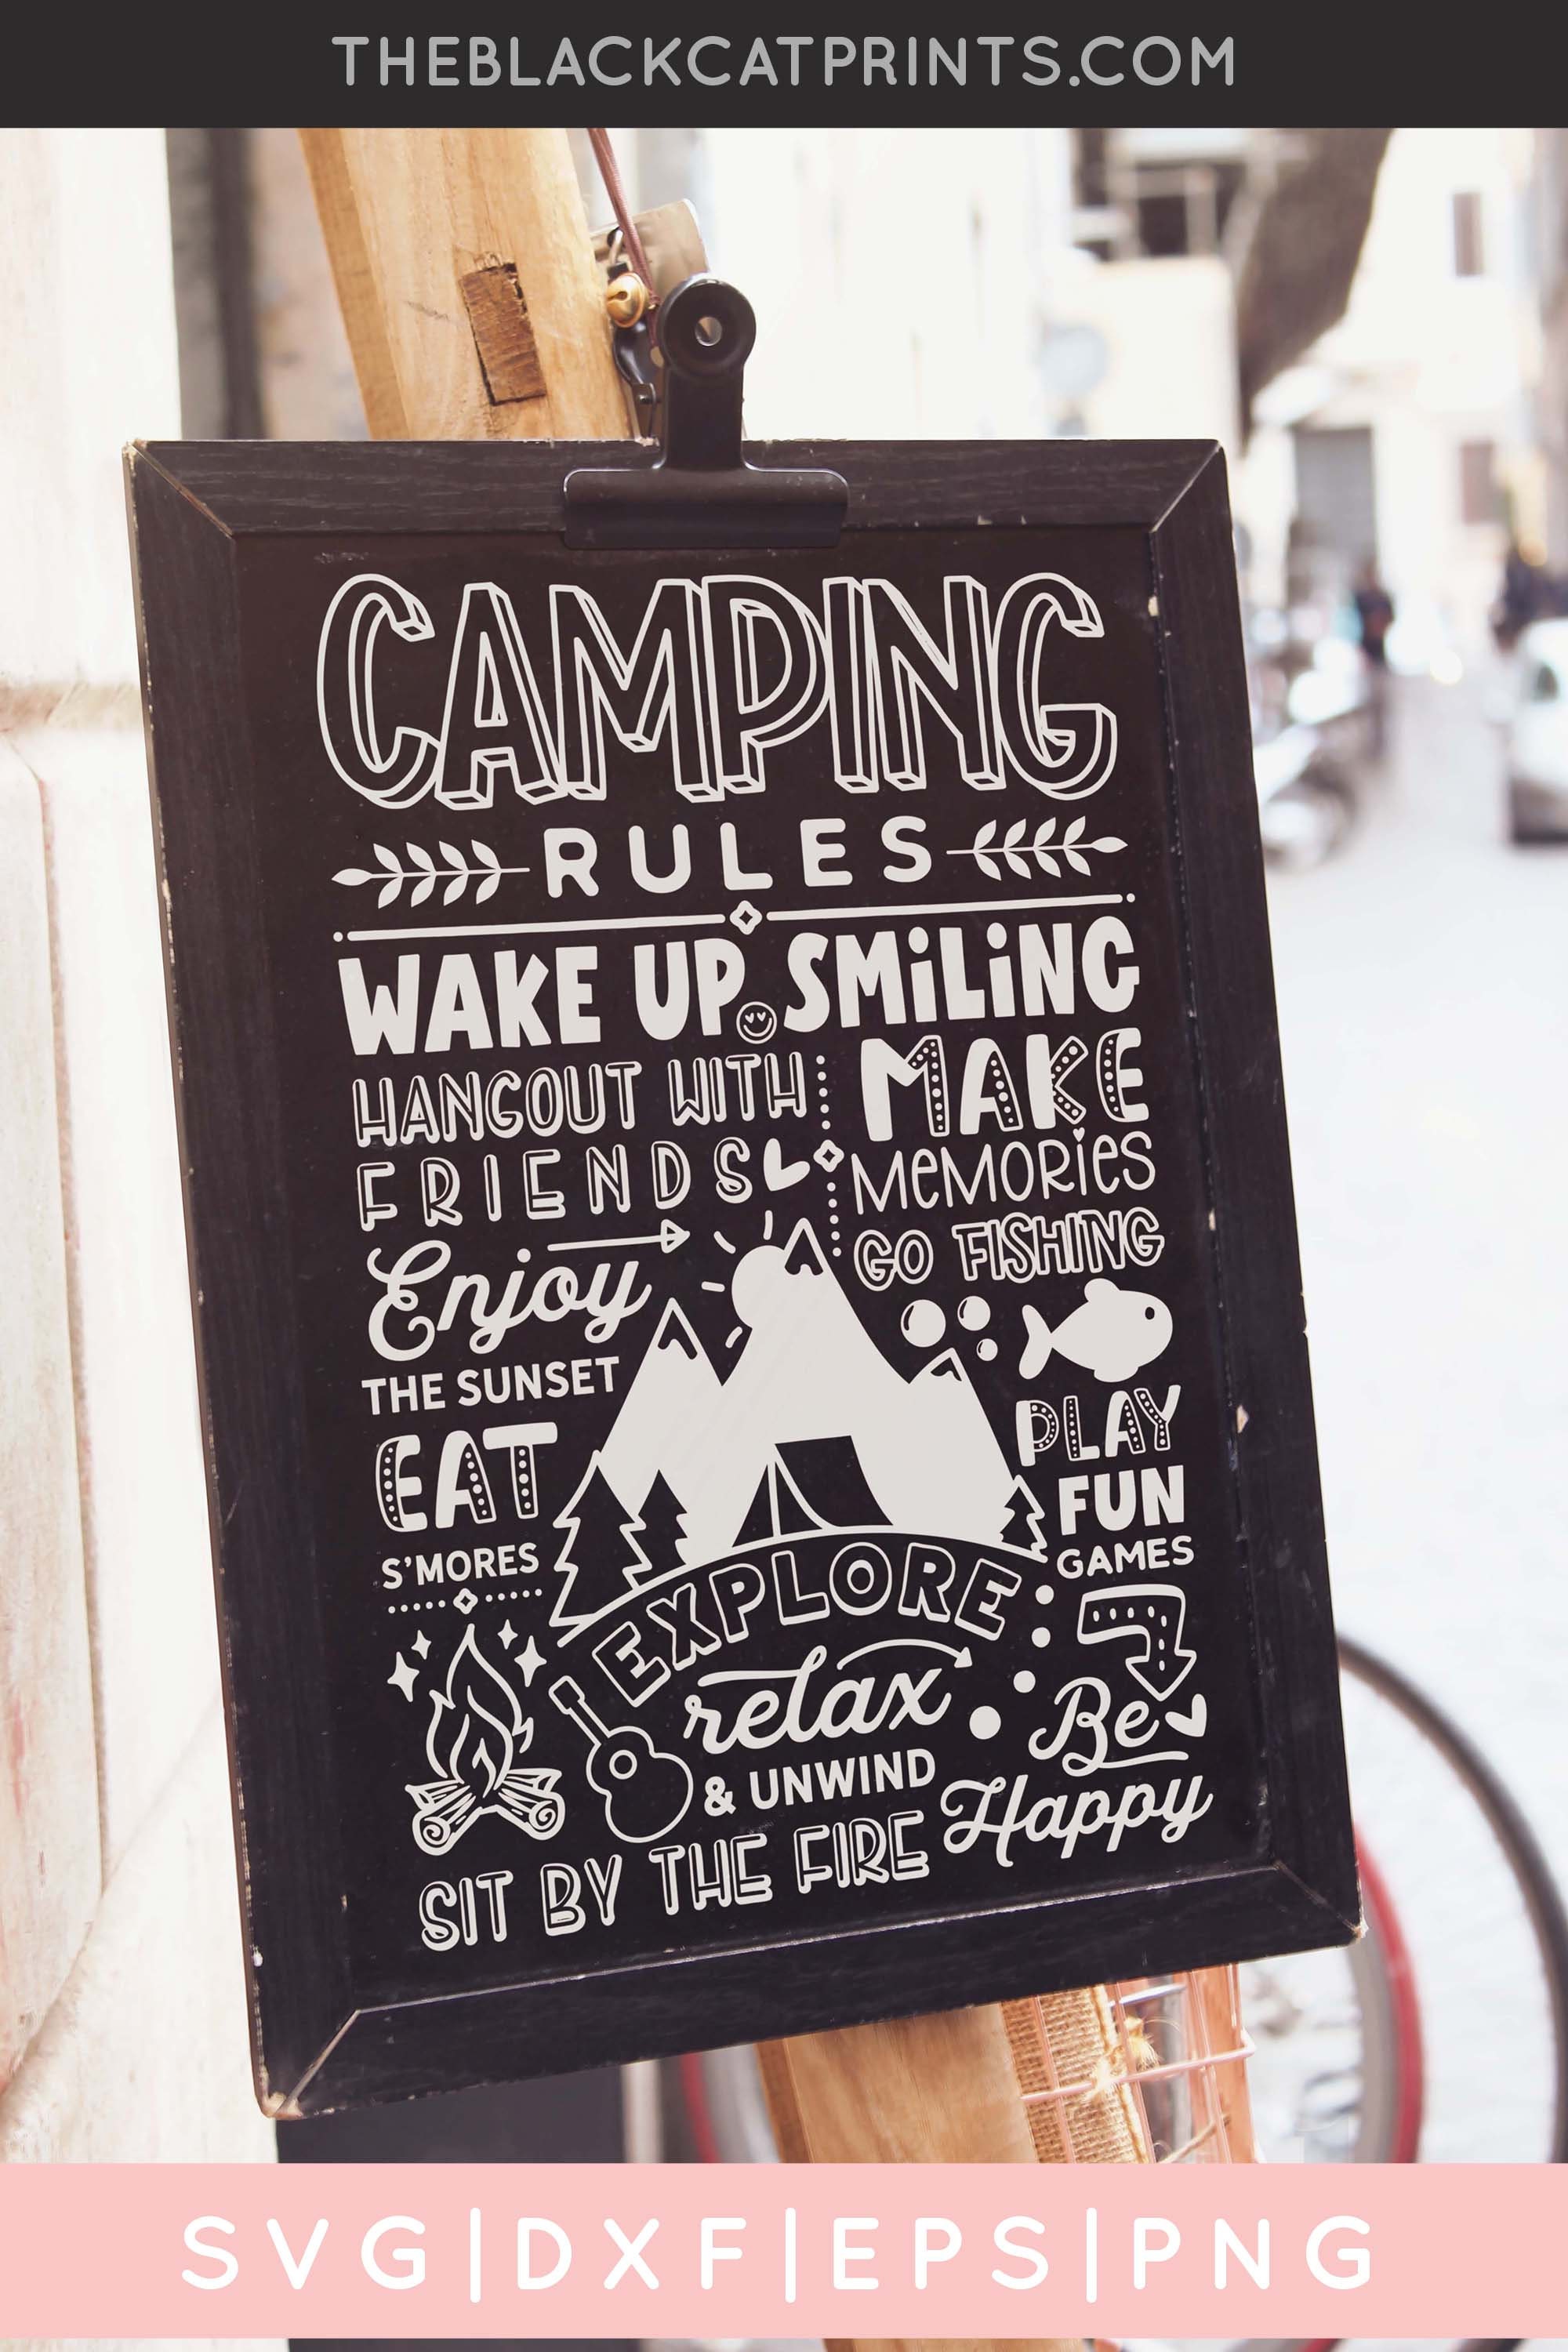 THEBLACKCATPRINTS.COM
CAMPING
RULES
WAKE UP SMiLiNG
HANGOUT WITH
FRIENDS
MAKE
MeMORies
GO FISHING
Enjoy
THE SUNSET
EAT
S'MORES
PLAY
FUN
GAMES
EXPLORE
relax
& UNWIND
Be
Happy
SIT BY THE FIRE
SVG|DXF|EPS|PNG